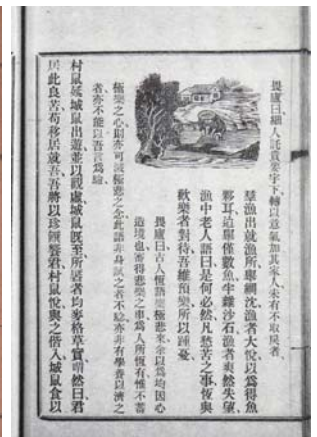 畏廬曰細人託貴要宇下轉以意氣加其家人未有不取戾者
羣漁出就漁所舉網沈漁者大悅以為得魚
夥耳迨舉僅數魚半雜沙石漁者爽然失望
漁中老人語曰是何必然凡愁苦之事恆與
歡樂者對待吾維預樂所以踵憂
畏廬曰古人恆謂樂極悲來余以為均因心
造境也審得悲樂之事為人所恆有惟不蓄
極樂之心則亦可減極悲之念此語非身試之者不驗亦非有學養以濟之
者亦不能以吾言為驗
村鼠延城鼠出遊並以觀處城鼠既至所居者均麥格草實萌然曰君
居此良苦苟移居就吾吾將以珍饌餐君村鼠悅與之偕入城鼠食以